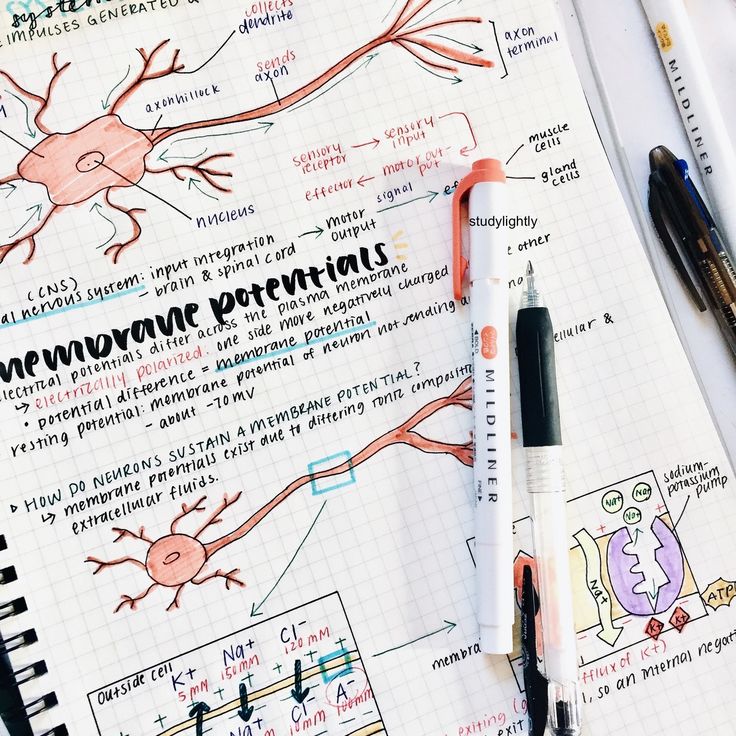 E IMPULSES GENERATED
collects
dendrite
axon
terminal
sends
axon
axonhillock
nucleus
sensory
receptor
sensory
input
motor out
put
effector
muscle
cells
gland
cells
signal
motor
output
(CNS)
al nervous system: input integration
- brain & spinal cord
studylightly
membrane potentials
electrical potentials differ across the plasma membrane
↳ electrically polarized: one side more negatively charged
other
• potential difference = membrane potential
resting potential: membrane potential of neuron not sending a
- about -70 mV
HOW DO NEURONS SUSTAIN A MEMBRANE POTENTIAL?
↳ membrane potentials exist due to differing ionic composition
cellular &
extracellular fluids.
MILDLINER
MILDLINER
FINE
BOLD
sodium-
potassium
pump
Na+
Na+
Na+
Na+
ATP
K+
K+
outside cell
K+
5 mM
Na+
150 mM
Cl-
120 mM
Na+
Cl-
10 mM
A-
100 mM
efflux of K+)
, so an internal negat
exiting (
exit